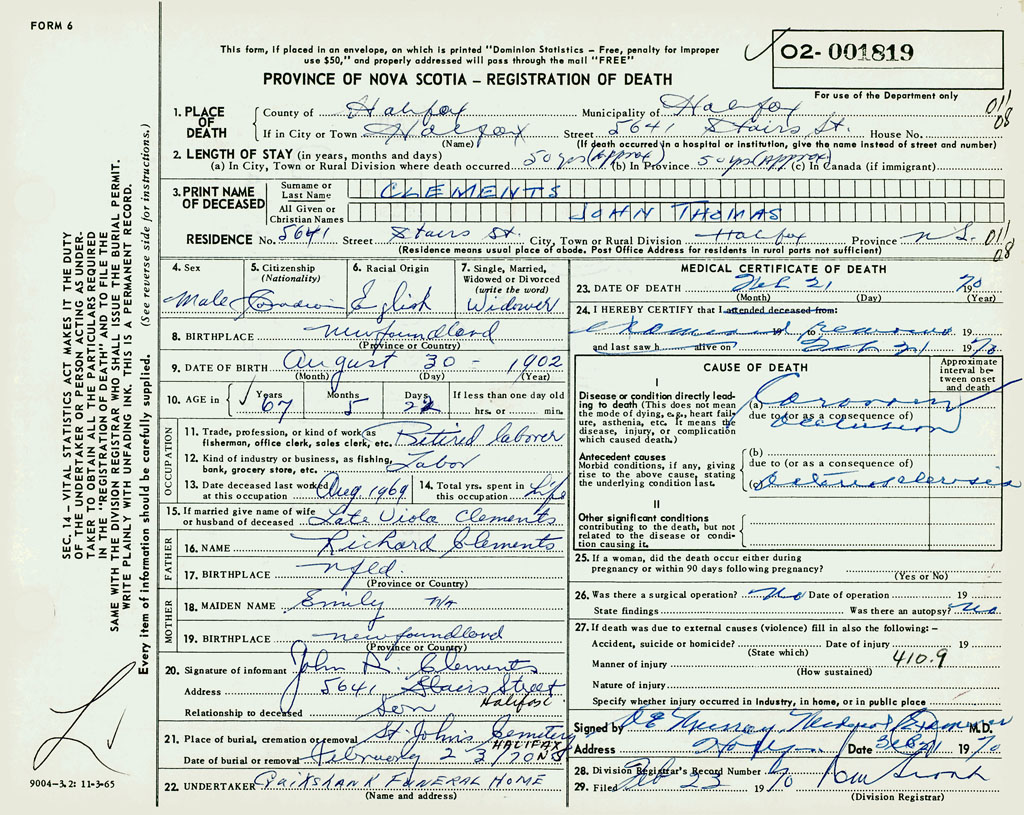 FORM 6
This form, if placed in an envelope, on which is printed "Dominion Statistics – Free, penalty for improper
use $50," and properly addressed will pass through the mail "FREE"
02- 001819
For use of the Department only
PROVINCE OF NOVA SCOTIA – REGISTRATION OF DEATH
1. PLACE OF DEATH
County of Halifax Municipality of Halifax 011/08
If in City or Town Halifax Street 5641 Stairs St. House No.
(Name) (If death occurred in a hospital or institution, give the name instead of street and number)
2. LENGTH OF STAY (in years, months and days)
(a) In City, Town or Rural Division where death occurred 50 yrs (Approx) (b) In Province 50 yrs (Approx) (c) In Canada (if immigrant)
3. PRINT NAME OF DECEASED
Surname or Last Name CLEMENTS
All Given or Christian Names JOHN THOMAS
RESIDENCE No. 5641 Street Stairs St. City, Town or Rural Division Halifax Province N.S. 011/08
(Residence means usual place of abode. Post Office Address for residents in rural parts not sufficient)
4. Sex Male
5. Citizenship (Nationality) Canadian
6. Racial Origin English
7. Single, Married, Widowed or Divorced (write the word) Widower
8. BIRTHPLACE Newfoundland
(Province or Country)
9. DATE OF BIRTH August 30 - 1902
(Month) (Day) (Year)
10. AGE in Years 67 Months 5 Days 22 If less than one day old hrs. or min.
OCCUPATION
11. Trade, profession, or kind of work as fisherman, office clerk, sales clerk, etc. Retired laborer
12. Kind of industry or business, as fishing, bank, grocery store, etc. Labor
13. Date deceased last worked at this occupation Aug. 1969 14. Total yrs. spent in this occupation Life
15. If married give name of wife or husband of deceased Late Viola Clements
FATHER
16. NAME Richard Clements
17. BIRTHPLACE Nfld.
(Province or Country)
MOTHER
18. MAIDEN NAME Emily NA
19. BIRTHPLACE Newfoundland
(Province or Country)
20. Signature of informant John A. Clements
Address 5641 Stairs Street Halifax
Relationship to deceased Son
21. Place of burial, cremation or removal St. John's Cemetery HALIFAX NS
Date of burial or removal February 23/70
22. UNDERTAKER Cruikshank FUNERAL HOME
(Name and address)
MEDICAL CERTIFICATE OF DEATH
23. DATE OF DEATH Feb 21 1970
(Month) (Day) (Year)
24. I HEREBY CERTIFY that I attended deceased from:
Examined 19 to remains 19
and last saw h alive on Feb 21 1970
CAUSE OF DEATH
Approximate interval between onset and death
I
Disease or condition directly leading to death (This does not mean the mode of dying, e.g., heart failure, asthenia, etc. It means the disease, injury, or complication which caused death.)
(a) Coronary
due to (or as a consequence of)
occlusion
Antecedent causes
Morbid conditions, if any, giving rise to the above cause, stating the underlying condition last.
(b)
due to (or as a consequence of)
(c) Arteriosclerosis
II
Other significant conditions contributing to the death, but not related to the disease or condition causing it.
25. If a woman, did the death occur either during pregnancy or within 90 days following pregnancy?
(Yes or No)
26. Was there a surgical operation? No Date of operation 19
State findings Was there an autopsy? No
27. If death was due to external causes (violence) fill in also the following: –
Accident, suicide or homicide? Date of injury 19
(State which)
Manner of injury 410.9
(How sustained)
Nature of injury
Specify whether injury occurred in Industry, in home, or in public place
Signed by Murray Medical Examiner M.D.
Address Halifax Date Feb 21 1970
28. Division Registrar's Record Number
29. Filed Feb 23 1970
(Division Registrar)
SEC. 14 – VITAL STATISTICS ACT MAKES IT THE DUTY
OF THE UNDERTAKER OR PERSON ACTING AS UNDER-
TAKER TO OBTAIN ALL THE PARTICULARS REQUIRED
IN THE "REGISTRATION OF DEATH" AND TO FILE THE
SAME WITH THE DIVISION REGISTRAR WHO SHALL ISSUE THE BURIAL PERMIT.
WRITE PLAINLY WITH UNFADING INK. THIS IS A PERMANENT RECORD.
Every item of information should be carefully supplied. (See reverse side for instructions.)
9004–3.2: 11-3-65